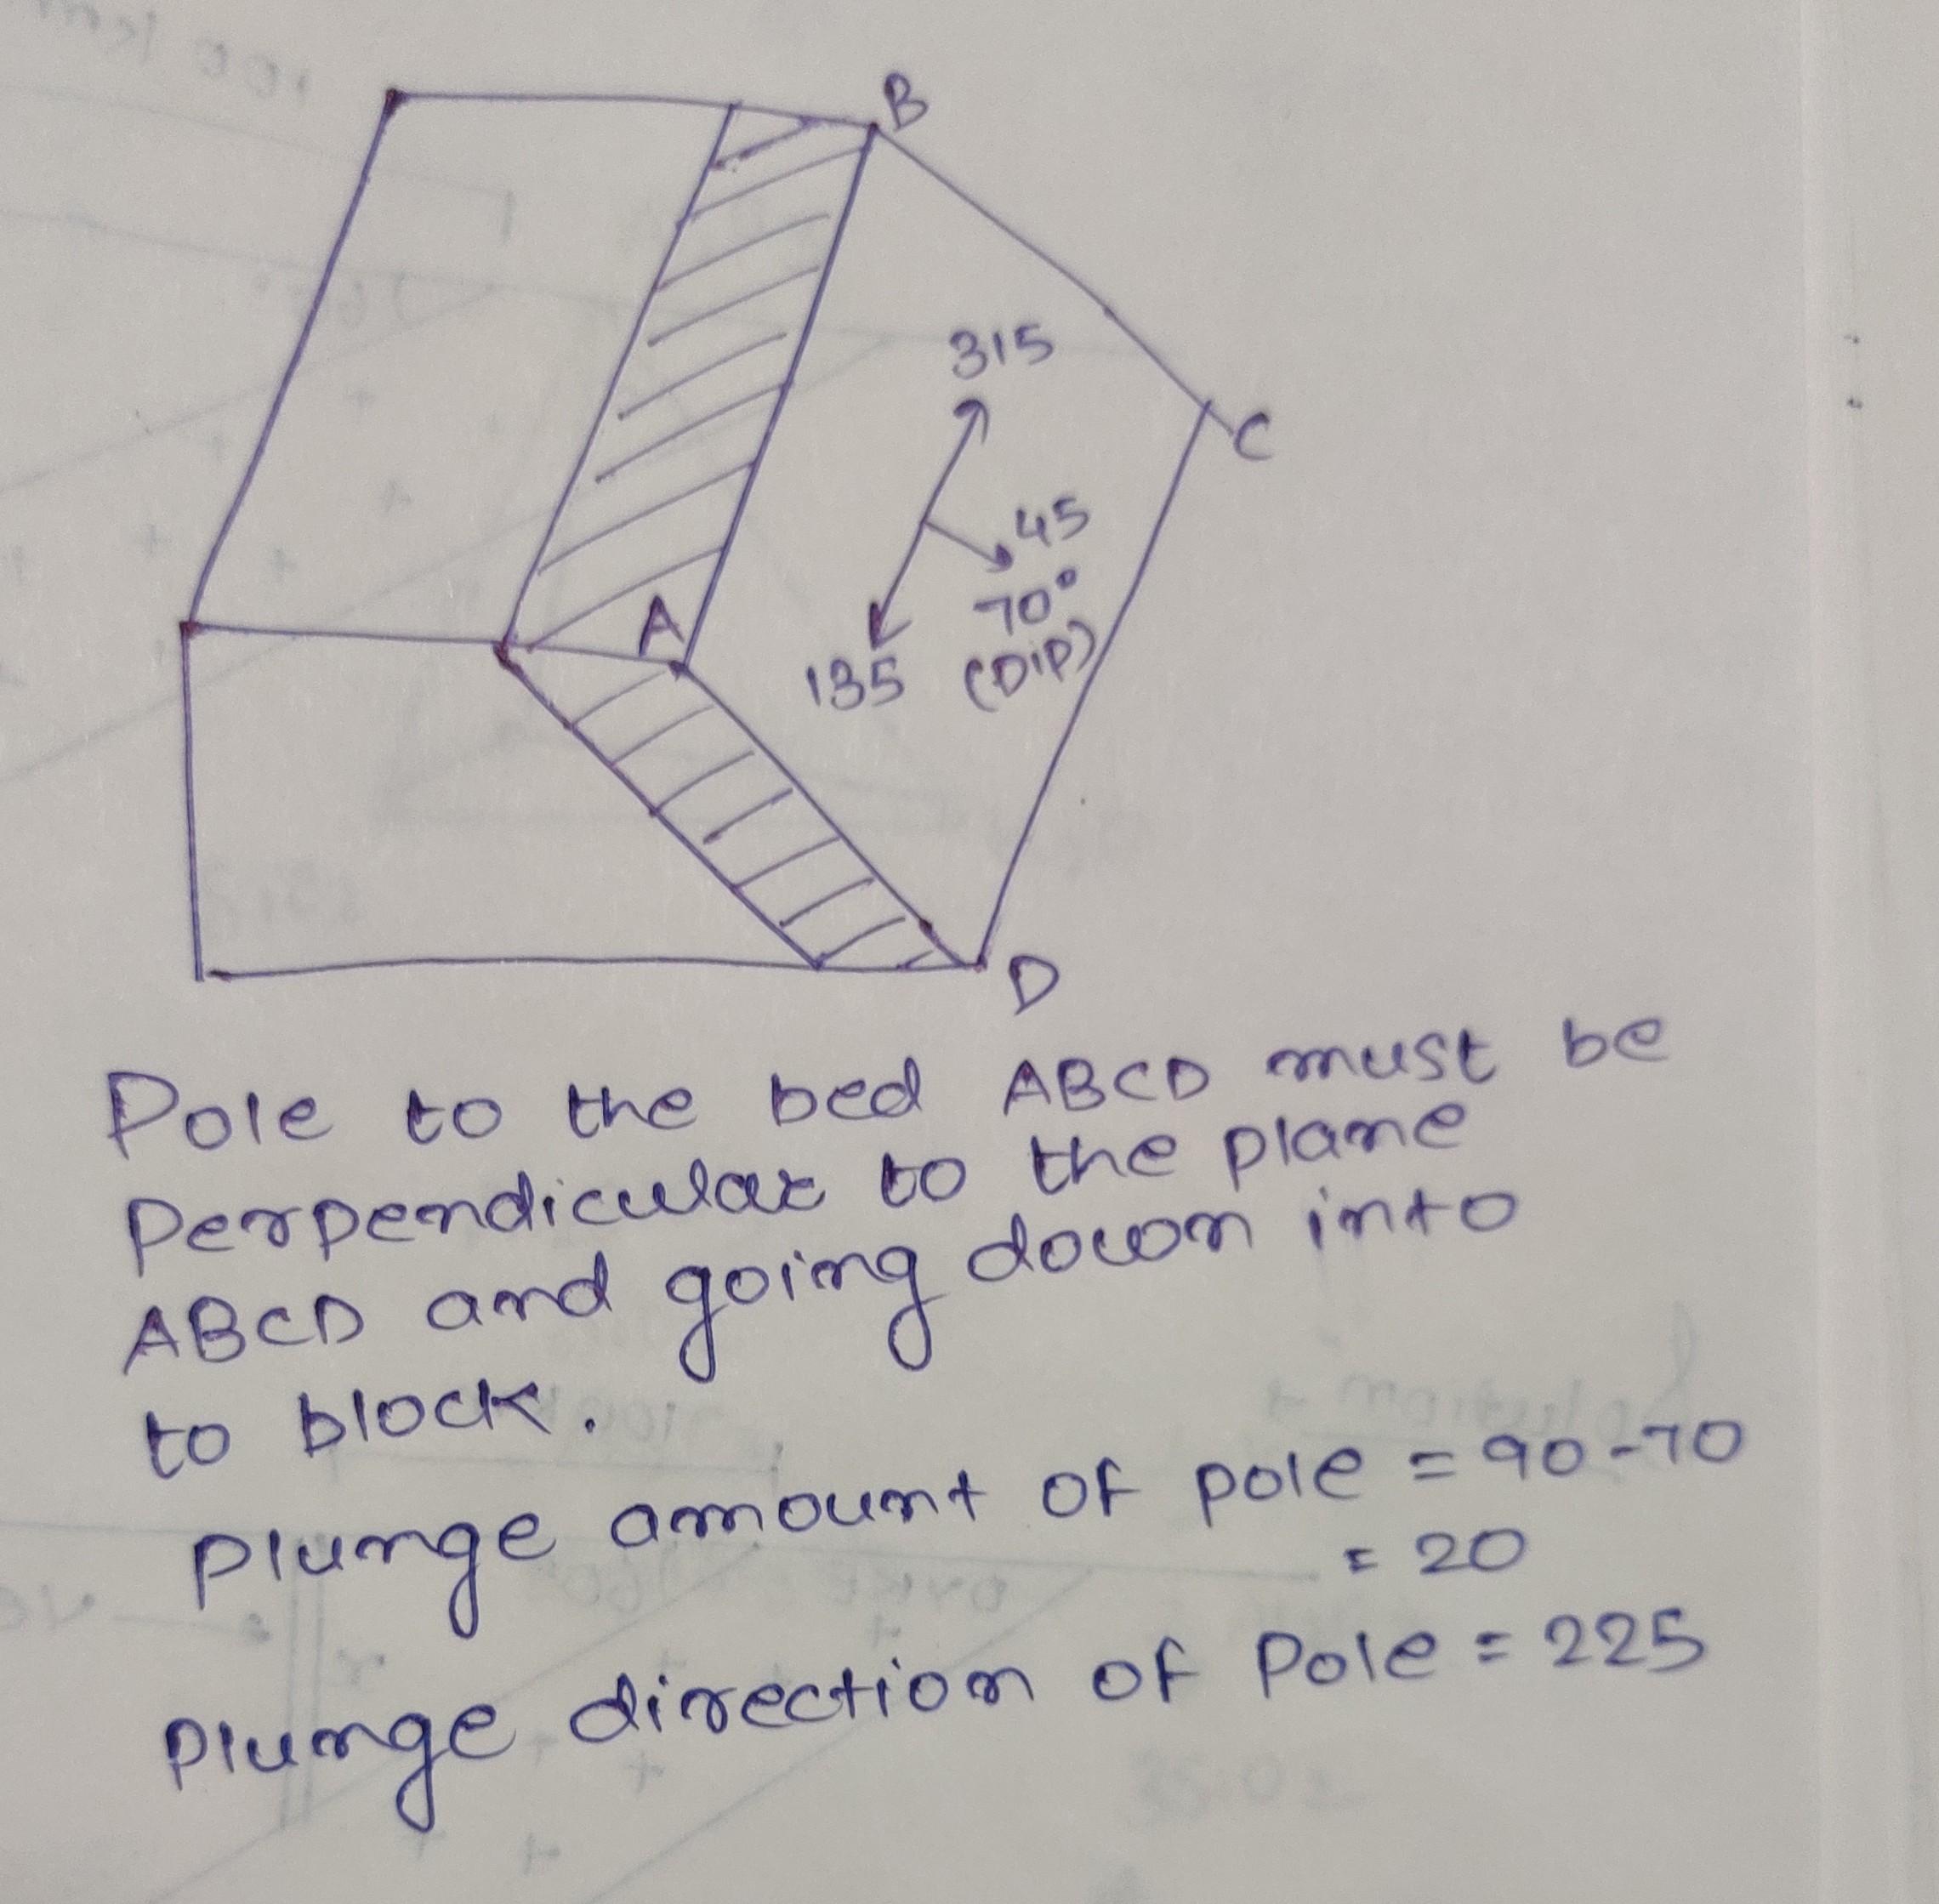 B
315
C
45
70°
A
135 (DiP)
D
Pole to the bed ABCD must be
Perpendicular to the plane
ABCD and going down into
to block.
Plunge amount of pole = 90-70
= 20
Plunge direction of Pole = 225